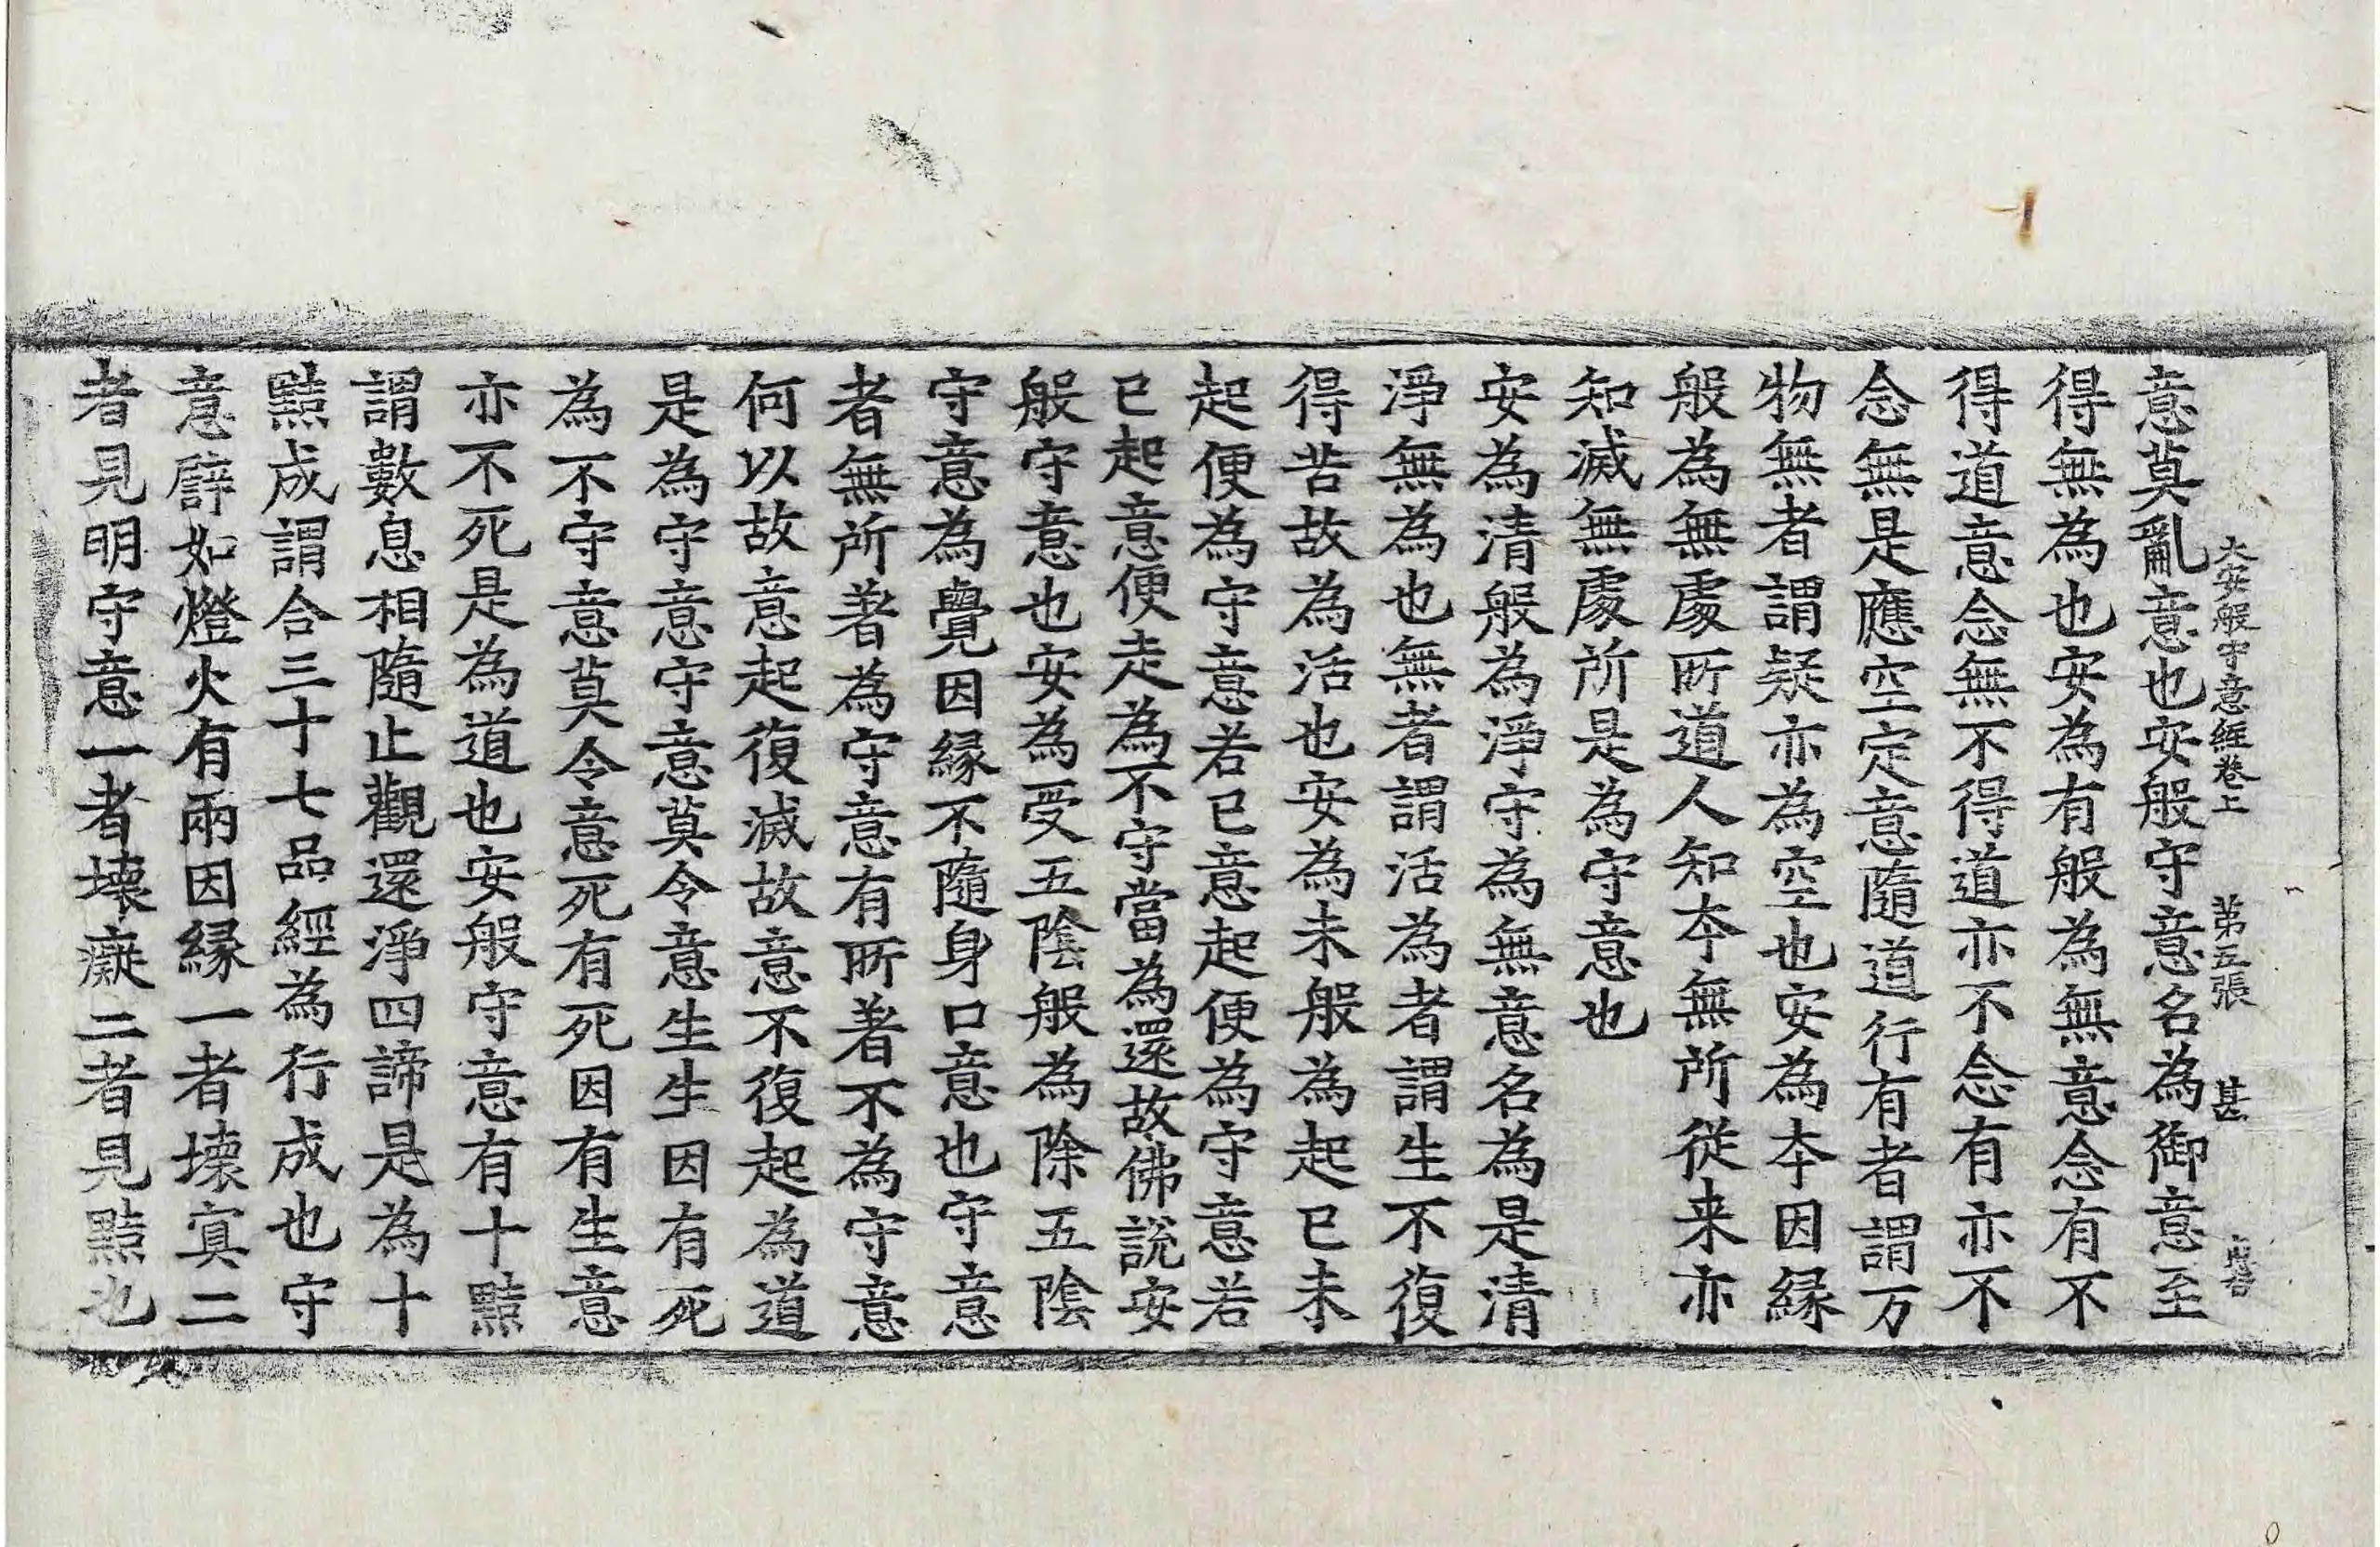 大安般守意經卷上 第五張 甚
意莫亂意也安般守意名為御意至
得無為也安為有般為無意念有不
得道意念無不得道亦不念有亦不
念無是應空定意隨道行有者謂万
物無者謂疑亦為空也安為夲因縁
般為無處所道人知夲無所從来亦
知滅無處所是為守意也
安為清般為淨守為無意名為是清
淨無為也無者謂活為者謂生不復
得苦故為活也安為未般為起已未
起便為守意若已意起便為守意若
已起意便走為不守當為還故佛說安
般守意也安為受五陰般為除五陰
守意為覺因縁不隨身口意也守意
者無所著為守意有所著不為守意
何以故意起復滅故意不復起為道
是為守意守意莫令意生生因有死
為不守意莫令意死有死因有生意
亦不死是為道也安般守意有十黠
謂數息相隨止觀還淨四諦是為十
黠成謂合三十七品經為行成也守
意譬如燈火有兩因縁一者壞冥二
者見明守意一者壞癡二者見黠也